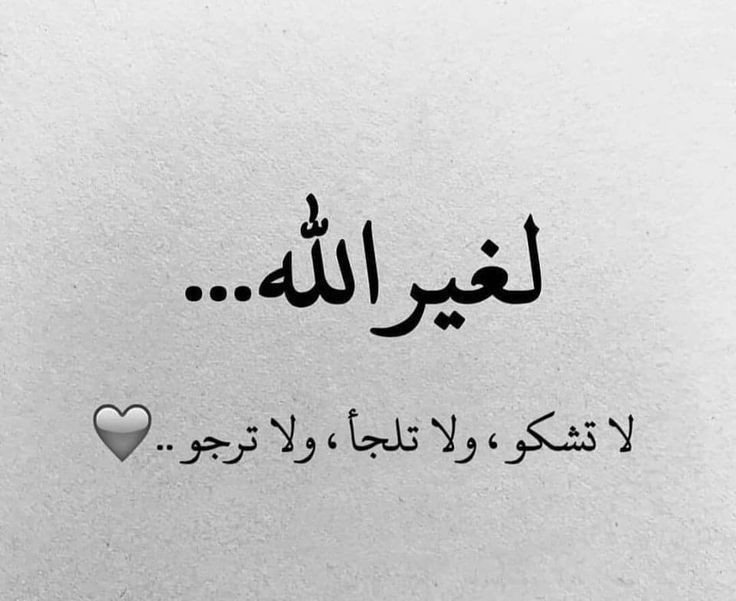 لغير الله...
لا تشكو ، ولا تلجأ ، ولا ترجو ..🤍